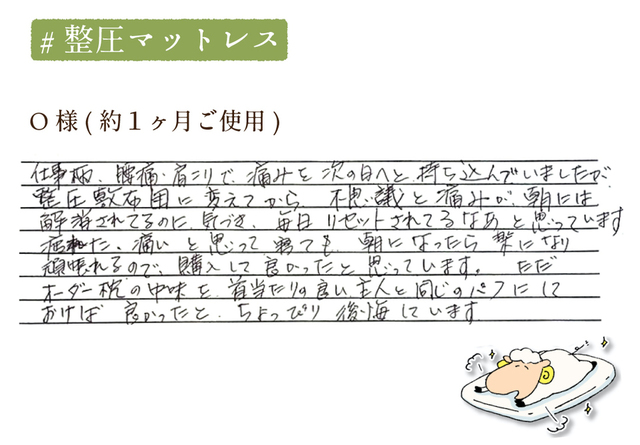 # 整圧マットレス
O様(約1ヶ月ご使用)
仕事柄、腰痛・肩こりで、痛みを次の日へと持ち込んでいましたが
整圧敷布団に変えてから、不思議と痛みが、朝には
解消されてるのに気づき、毎日リセットされてるなあと思っています
疲れた、痛いと思って寝ても、朝になったら楽になり
頑張れるので、購入して良かったと思っています。 ただ
オーダー枕の中味を、首当たりの良い主人と同じのパフにして
おけば 良かったと、ちょっぴり後悔しています